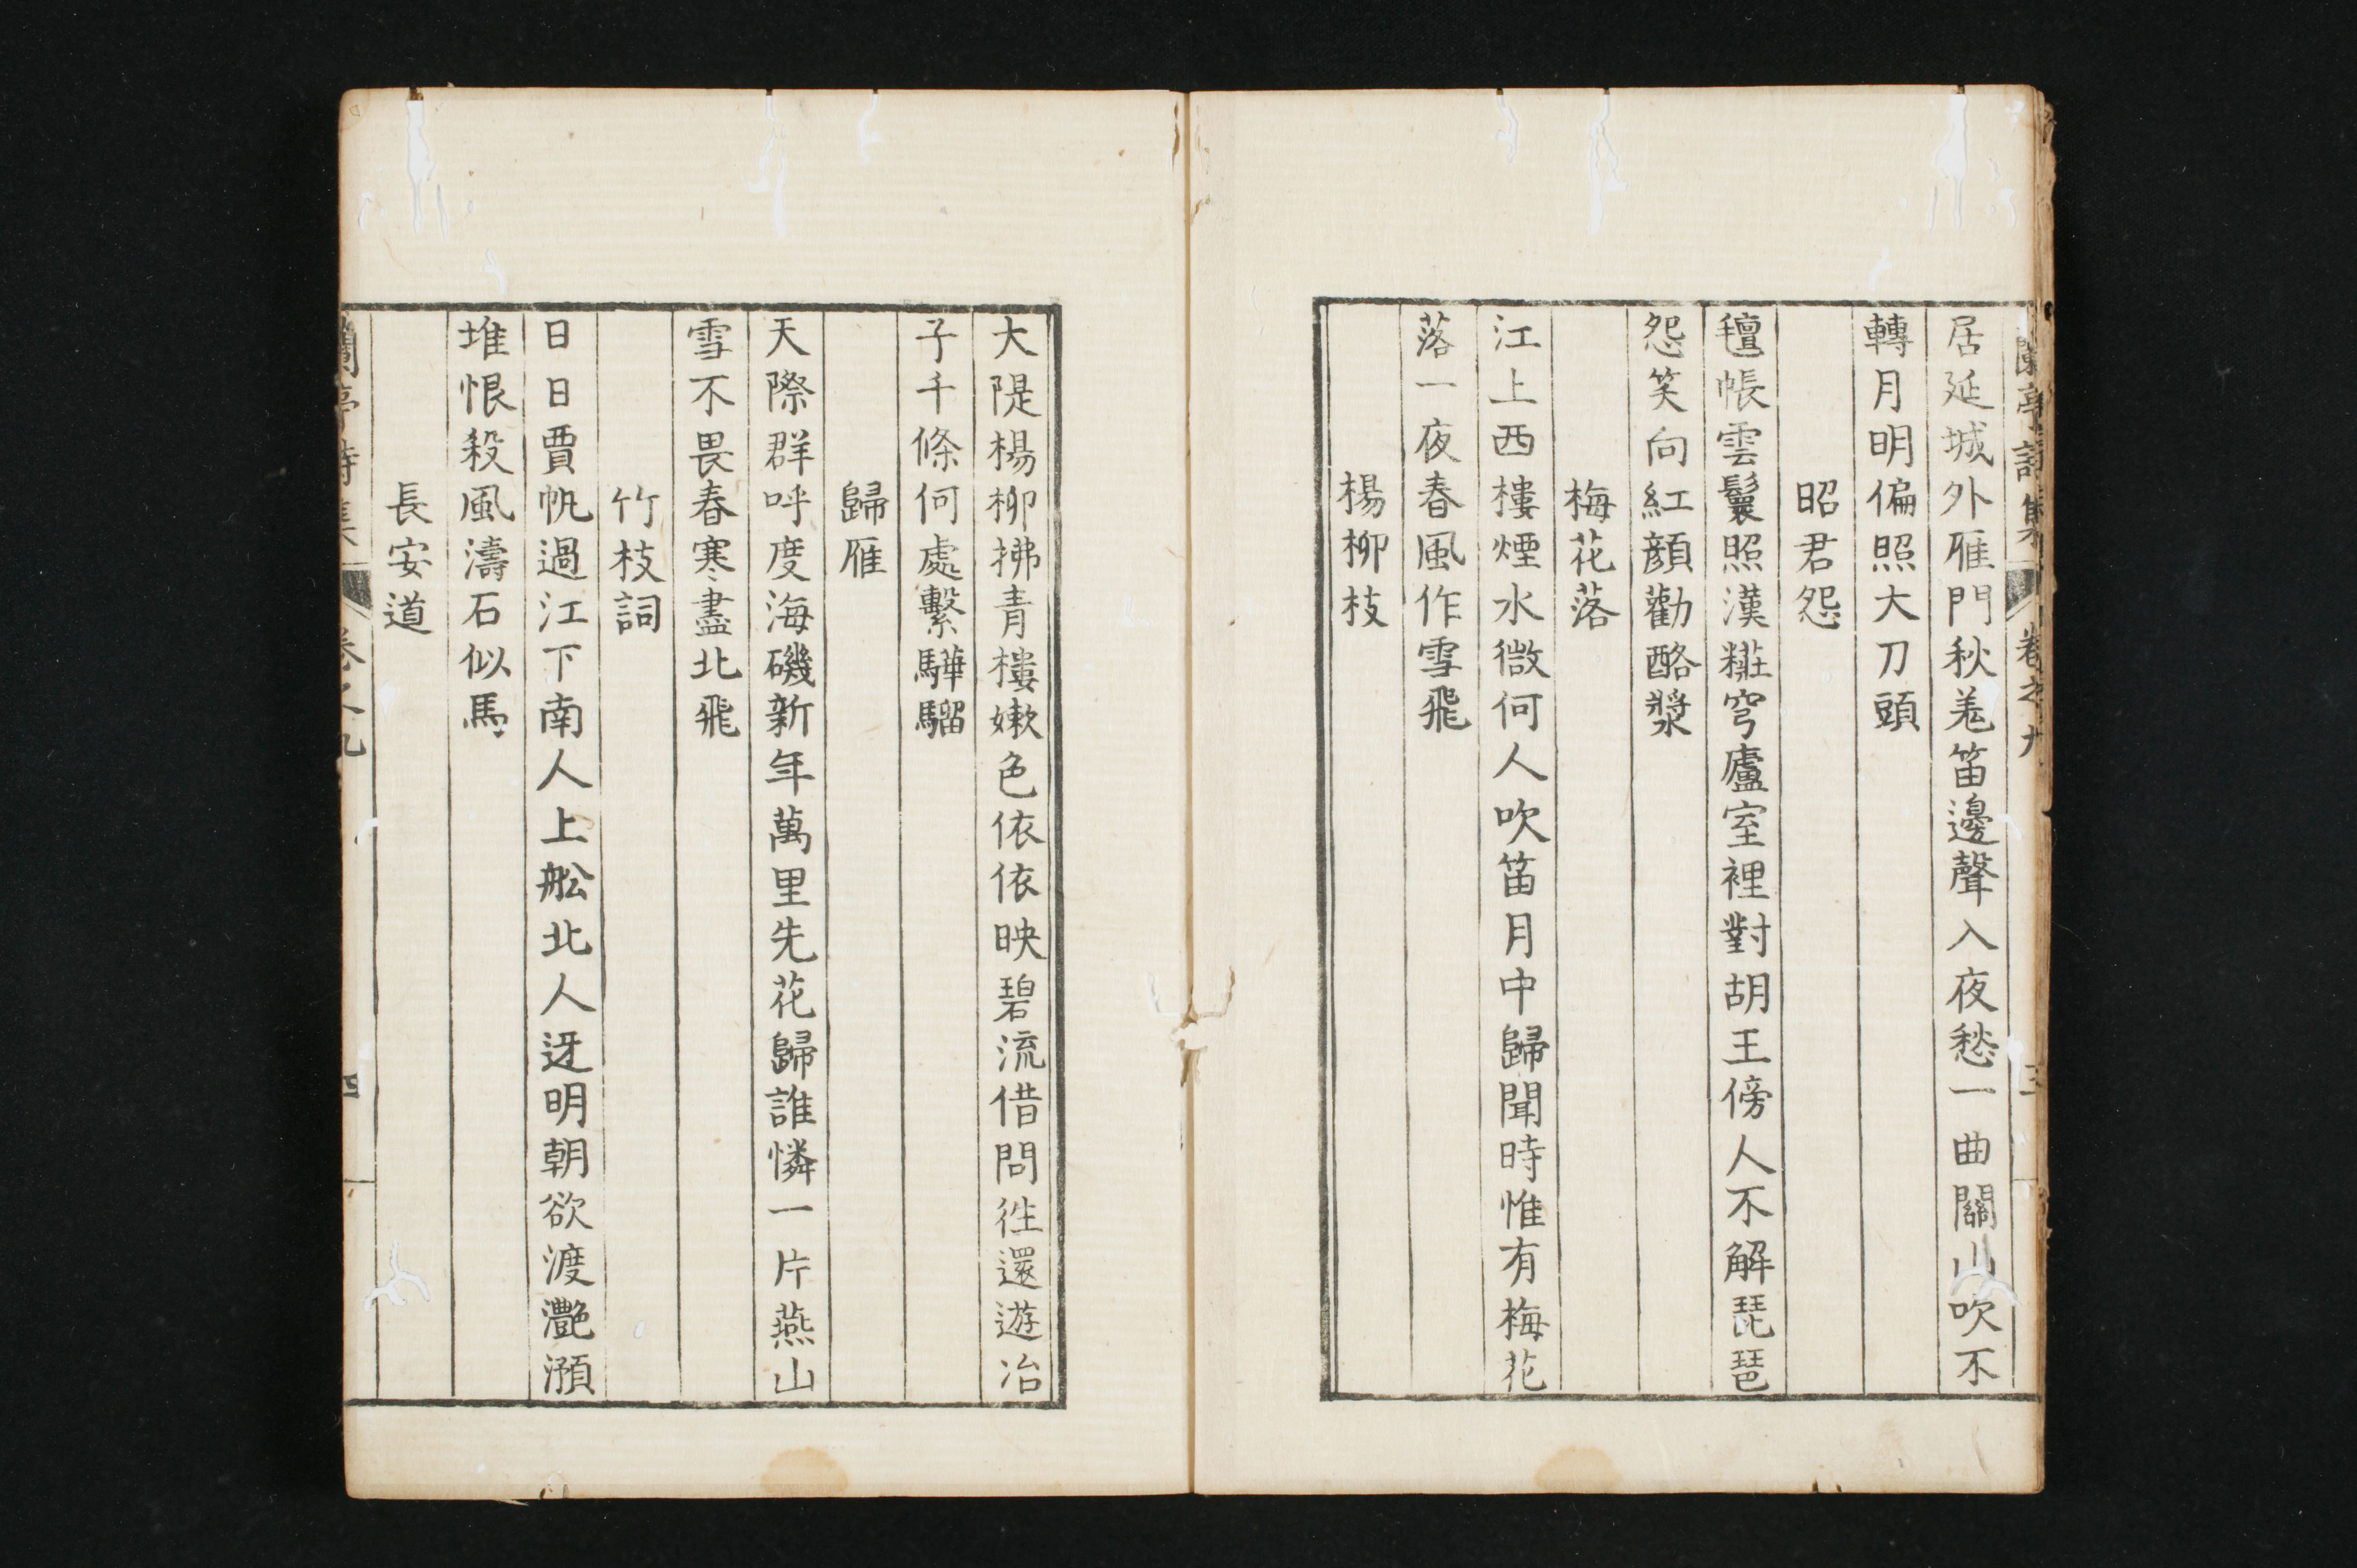 蘭亭詩集 卷之九 三
居延城外雁門秋羌笛邊聲入夜愁一曲關山吹不
轉月明偏照大刀頭
昭君怨
氊帳雲鬟照漢粧穹廬室裡對胡王傍人不解琵琶
怨笑向紅顔勸酪漿
梅花落
江上西樓煙水微何人吹笛月中歸聞時惟有梅花
落一夜春風作雪飛
楊柳枝
大隄楊柳拂青樓嫩色依依映碧流借問徃還遊冶
子千條何處繫驊騮
歸雁
天際群呼度海磯新年萬里先花歸誰憐一片燕山
雪不畏春寒盡北飛
竹枝詞
日日賈帆過江下南人上舩北人迓明朝欲渡灔澦
堆恨殺風濤石似馬
長安道
蘭亭詩集 卷之九 四